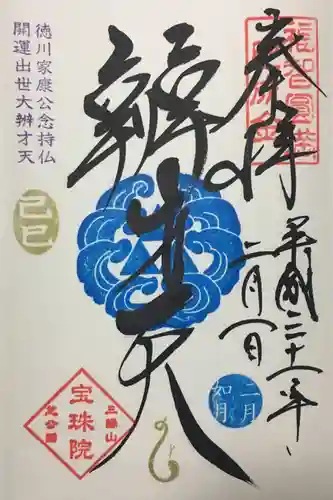 奉拝
平成二十一年
二月一日
辨才天
二月
如月
徳川家康公念持仏
開運出世大辨才天
己巳
三縁山
宝珠院
芝公園